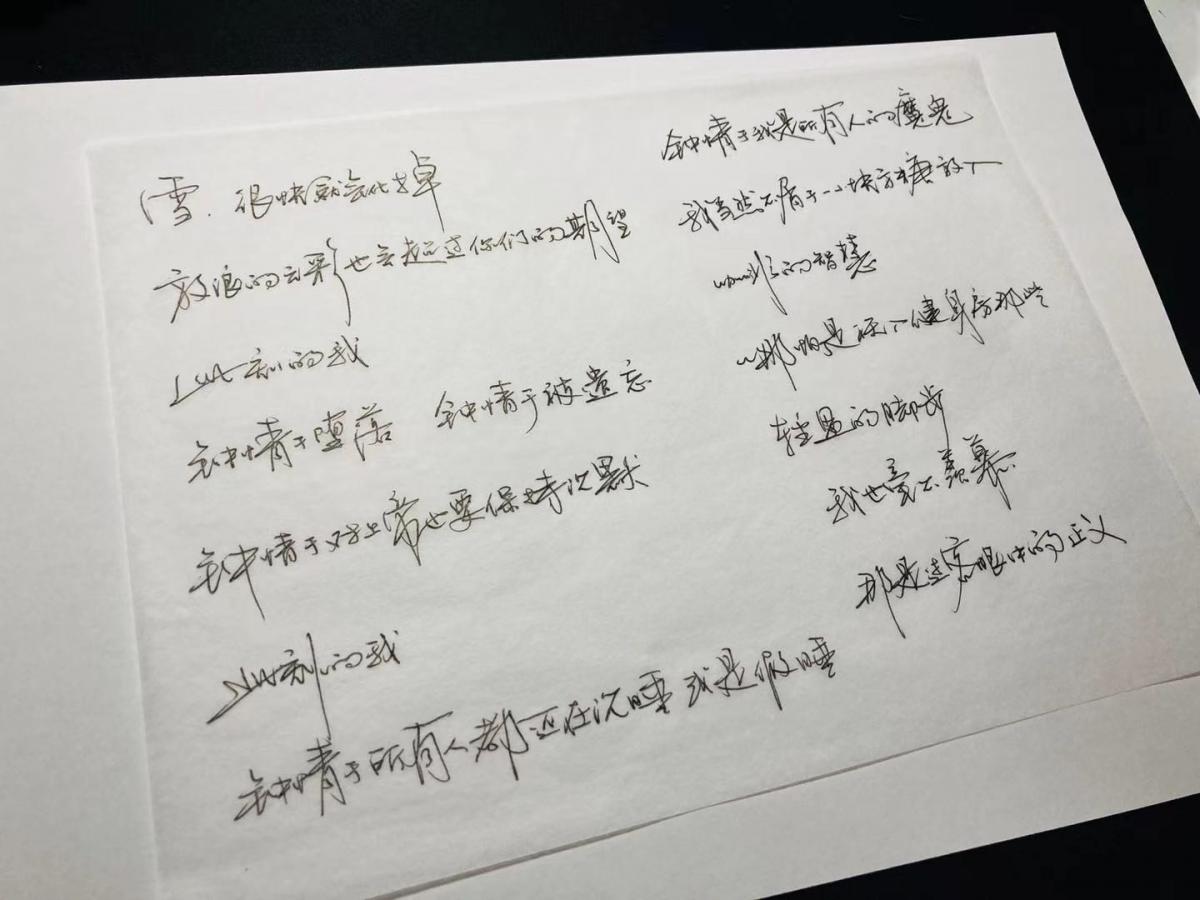 雪.很快就会化掉
放浪的云彩也会超过你们的期望
此刻的我
钟情于堕落 钟情于被遗忘
钟情于对上帝也要保持沉默
此刻的我
钟情于所有人都还在沉睡或是假睡
钟情于我是所有人的魔鬼
我当然不屑于一小块方糖放下
的智慧
哪怕是 健身房那些
轻盈的脚步
我也毫不羡慕
那是过客眼中的正义